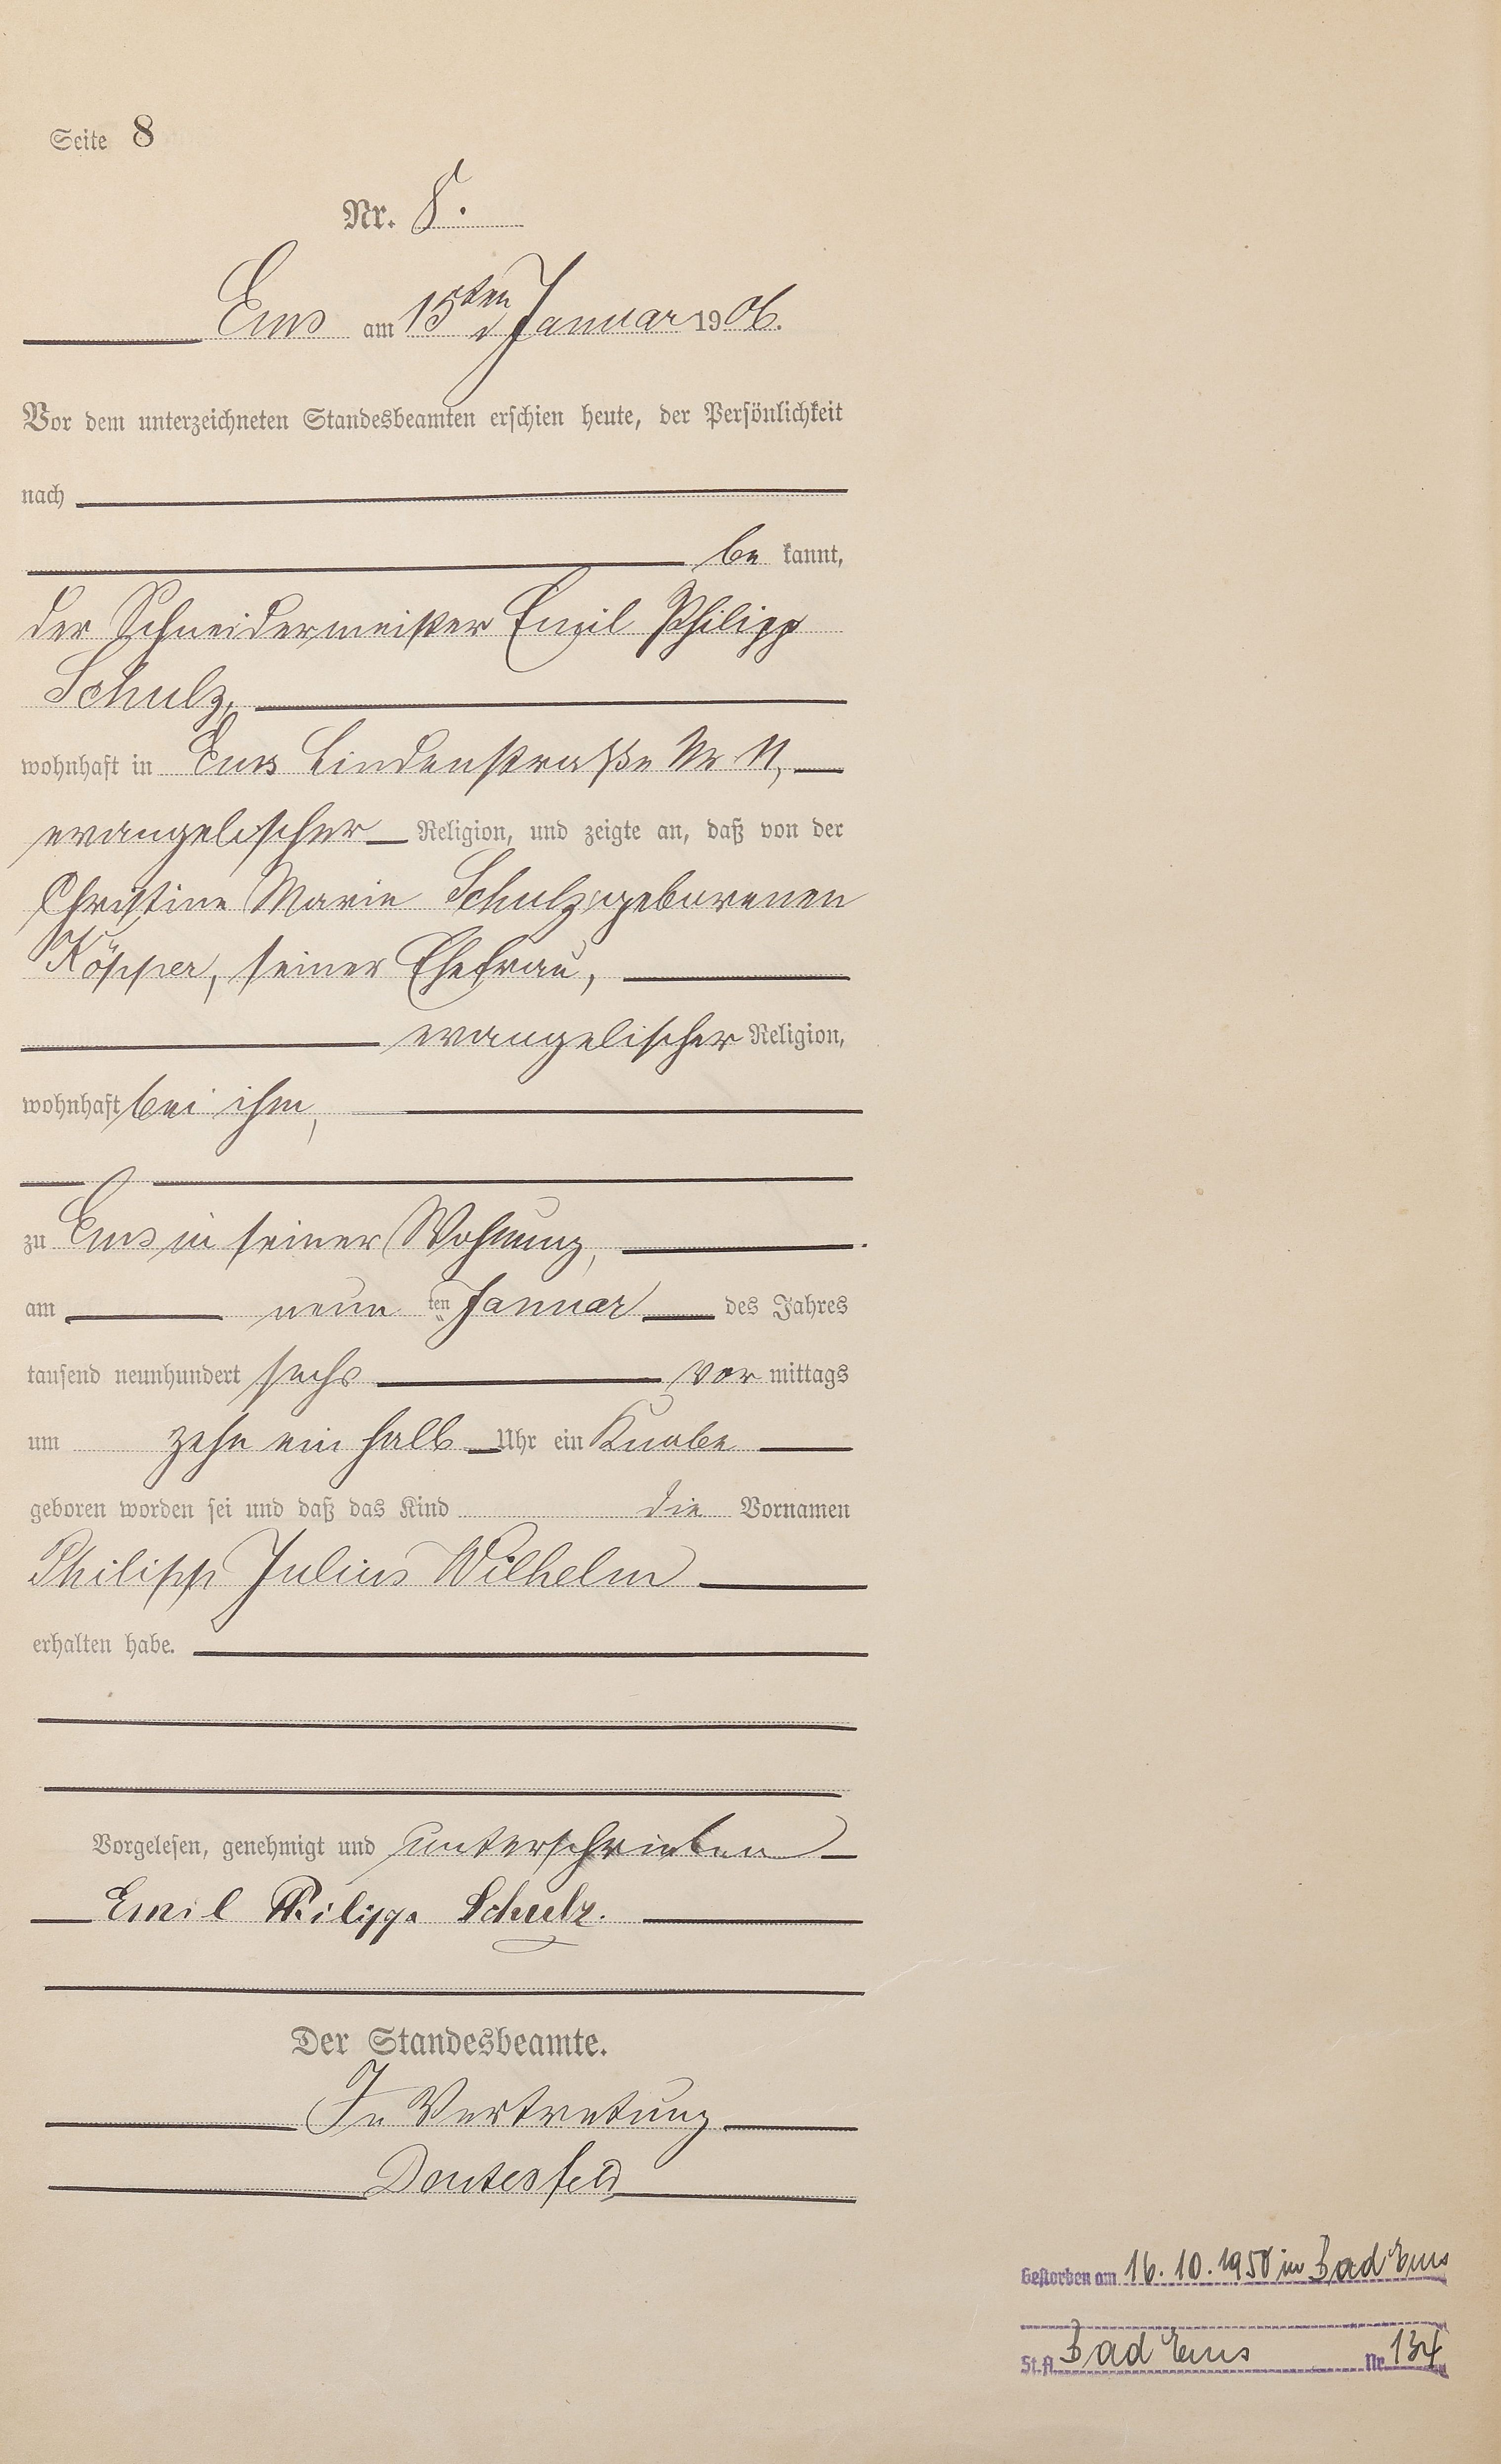 Seite 8
Nr. 8.
Ems am 15ten Januar 1906.
Vor dem unterzeichneten Standesbeamten erschien heute, der Persönlichkeit
nach
be kannt,
der Schneidermeister Emil Philipp
Schulz,
wohnhaft in Ems Lindenstraße Nr 11,
evangelischer Religion, und zeigte an, daß von der
Christine Marie Schulz geborenen
Köpper, seiner Ehefrau,
evangelischer Religion,
wohnhaft bei ihm,
zu Ems in seiner Wohnung,
am neun ten Januar des Jahres
tausend neunhundert sechs vor mittags
um zehn ein halb Uhr ein Knabe
geboren worden sei und daß das Kind die Vornamen
Philipp Julius Wilhelm
erhalten habe.
Vorgelesen, genehmigt und unterschrieben
Emil Philipp Schulz.
Der Standesbeamte.
In Vertretung
Gestorben am 16.10.1958 in Bad Ems
St.A. Bad Ems Nr. 134